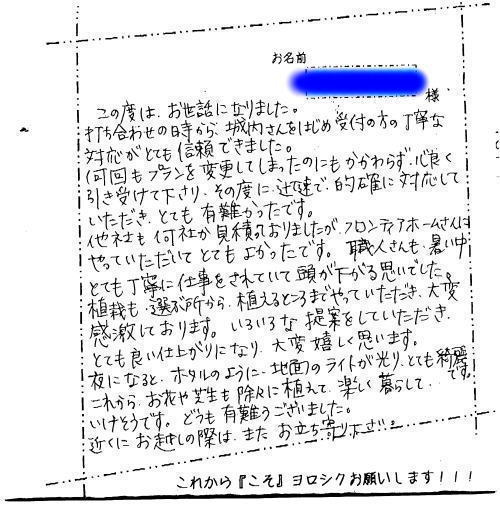 お名前
様
この度は、お世話になりました。
打ち合わせの時から、城内さんをはじめ受付の方の丁寧な
対応がとても信頼できました。
何回もプランを変更してしまったのにもかかわらず、心良く
引き受けて下さり、その度に、迅速で、的確に対応して
いただき、とても有難かったです。
他社も何社か見積りおりましたが、フロンティアホームさんに
やっていただいてとてもよかったです。職人さんも、暑い中
とても丁寧に仕事をされていて頭が下がる思いでした。
植栽も、選ぶ所から、植えるところまでやっていただき、大変
感激しております。いろいろな提案をしていただき、
とても良い仕上がりになり、大変嬉しく思います。
夜になると、ホタルのように、地面のライトが光り、とても綺麗です。
これから、お花や芝生も除々に植えて、楽しく暮らして
いけそうです。どうも有難うございました。
近くにお越しの際は、またお立ち寄り下さい。
これから『こそ』ヨロシクお願いします！！！